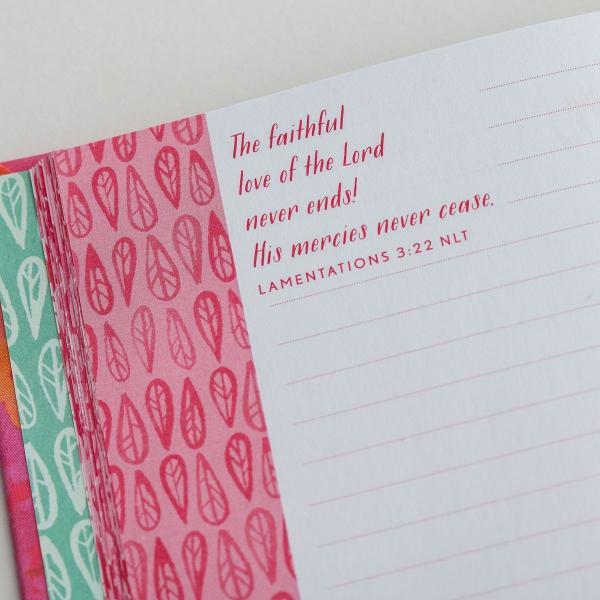 The faithful
love of the Lord
never ends!
His mercies never cease.
LAMENTATIONS 3:22 NLT